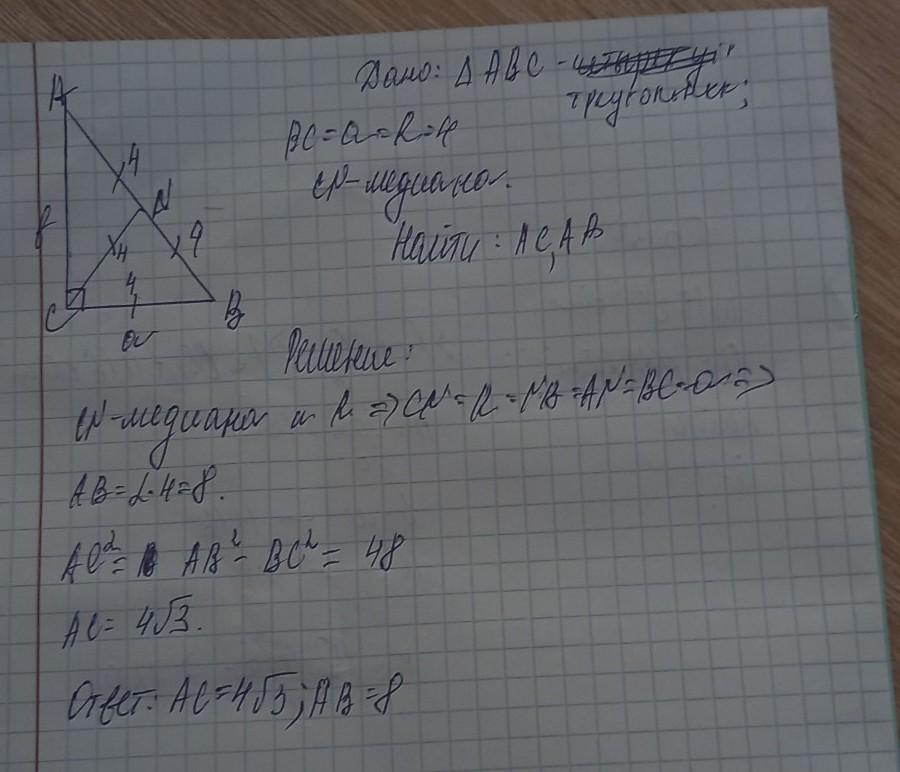 Дано: Δ ABC -
треугольник;
BC = a = R = 4
CN - медиана.
Найти: AC, AB
A
4
N
4
4
4
C
B
a
Решение:
CN - медиана и R. => CN = R = NB = AN = BC = a =>
AB = 2·4 = 8.
AC² = AB² - BC² = 48
AC = 4√3.
Ответ: AC = 4√3; AB = 8